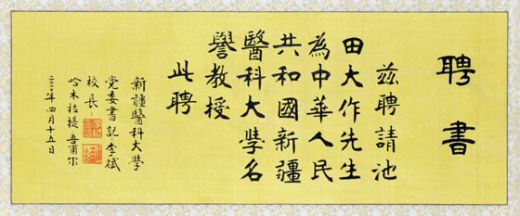 聘書
茲聘請池
田大作先生
為中華人民
共和國新疆
醫科大學名
譽教授
此聘
新疆醫科大學
党委書記李斌
校長：
哈木拉提·吾甫尔
二〇〇年四月十五日